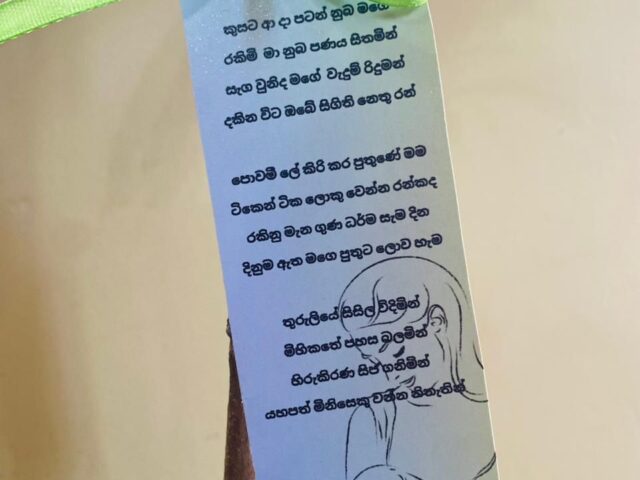 කුසට ආ දා පටන් නුඹ මගෙ
රකිමි මා නුඹ පණය සිතමින්
සැඟ වුනිද මගේ වැදුම් රිදුමන්
දකින විට ඔබේ සිගිති නෙතු රන්
පොවමි ලේ කිරි කර පුතුණේ මම
ටිකෙන් ටික ලොකු වෙන්න රන්කද
රකිනු මැන ගුණ ධර්ම සැම දින
දිනුම ඇත මගෙ පුතුට ලොව හැම
තුරුලියේ සිසිල විදිමින්
මිහිකතේ පහස බලමින්
හිරුකිරණ සිප් ගනිමින්
යහපත් මිනිසෙකු වන්න නිතැතින්